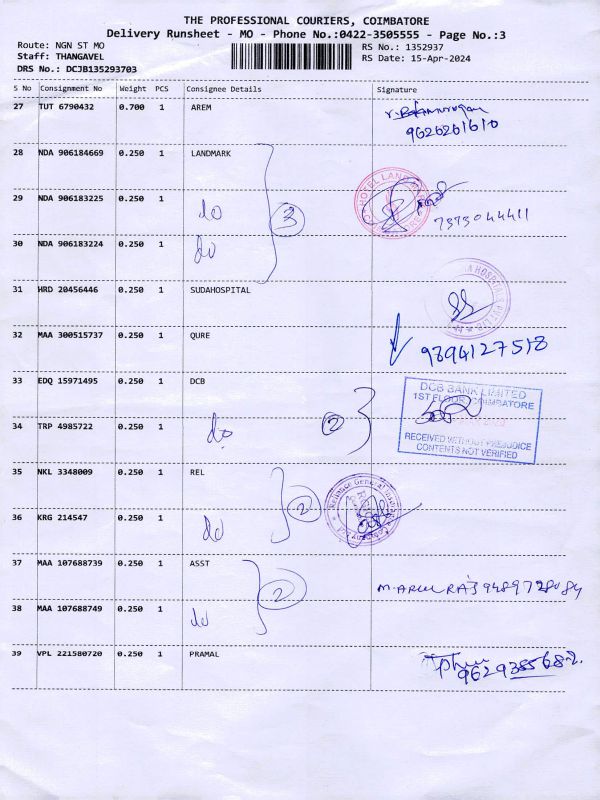 THE PROFESSIONAL COURIERS, COIMBATORE
Delivery Runsheet - MO - Phone No.:0422-3505555 - Page No.:3
Route: NGN ST MO
RS No.: 1352937
Staff: THANGAVEL
RS Date: 15-Apr-2024
DRS No.: DCJB135293703
S No Consignment No Weight PCS Consignee Details Signature
27 TUT 6790432 0.700 1 AREM
9626261610
28 NDA 906184669 0.250 1 LANDMARK
HOTEL LANDMARK
29 NDA 906183225 0.250 1 do 3
7373044411
30 NDA 906183224 0.250 1 do
31 HRD 20456446 0.250 1 SUDAHOSPITAL
32 MAA 300515737 0.250 1 QURE
9894127518
33 EDQ 15971495 0.250 1 DCB
DCB BANK LIMITED
1ST FLOOR, COIMBATORE
34 TRP 4985722 0.250 1 do 2
RECEIVED WITHOUT PREJUDICE
CONTENTS NOT VERIFIED
35 NKL 3348009 0.250 1 REL 2
Reliance General Insurance
36 KRG 214547 0.250 1 do
37 MAA 107688739 0.250 1 ASST 2
M. ARUL RAJ 9489728084
38 MAA 107688749 0.250 1 do
39 VPL 221580720 0.250 1 PRAMAL